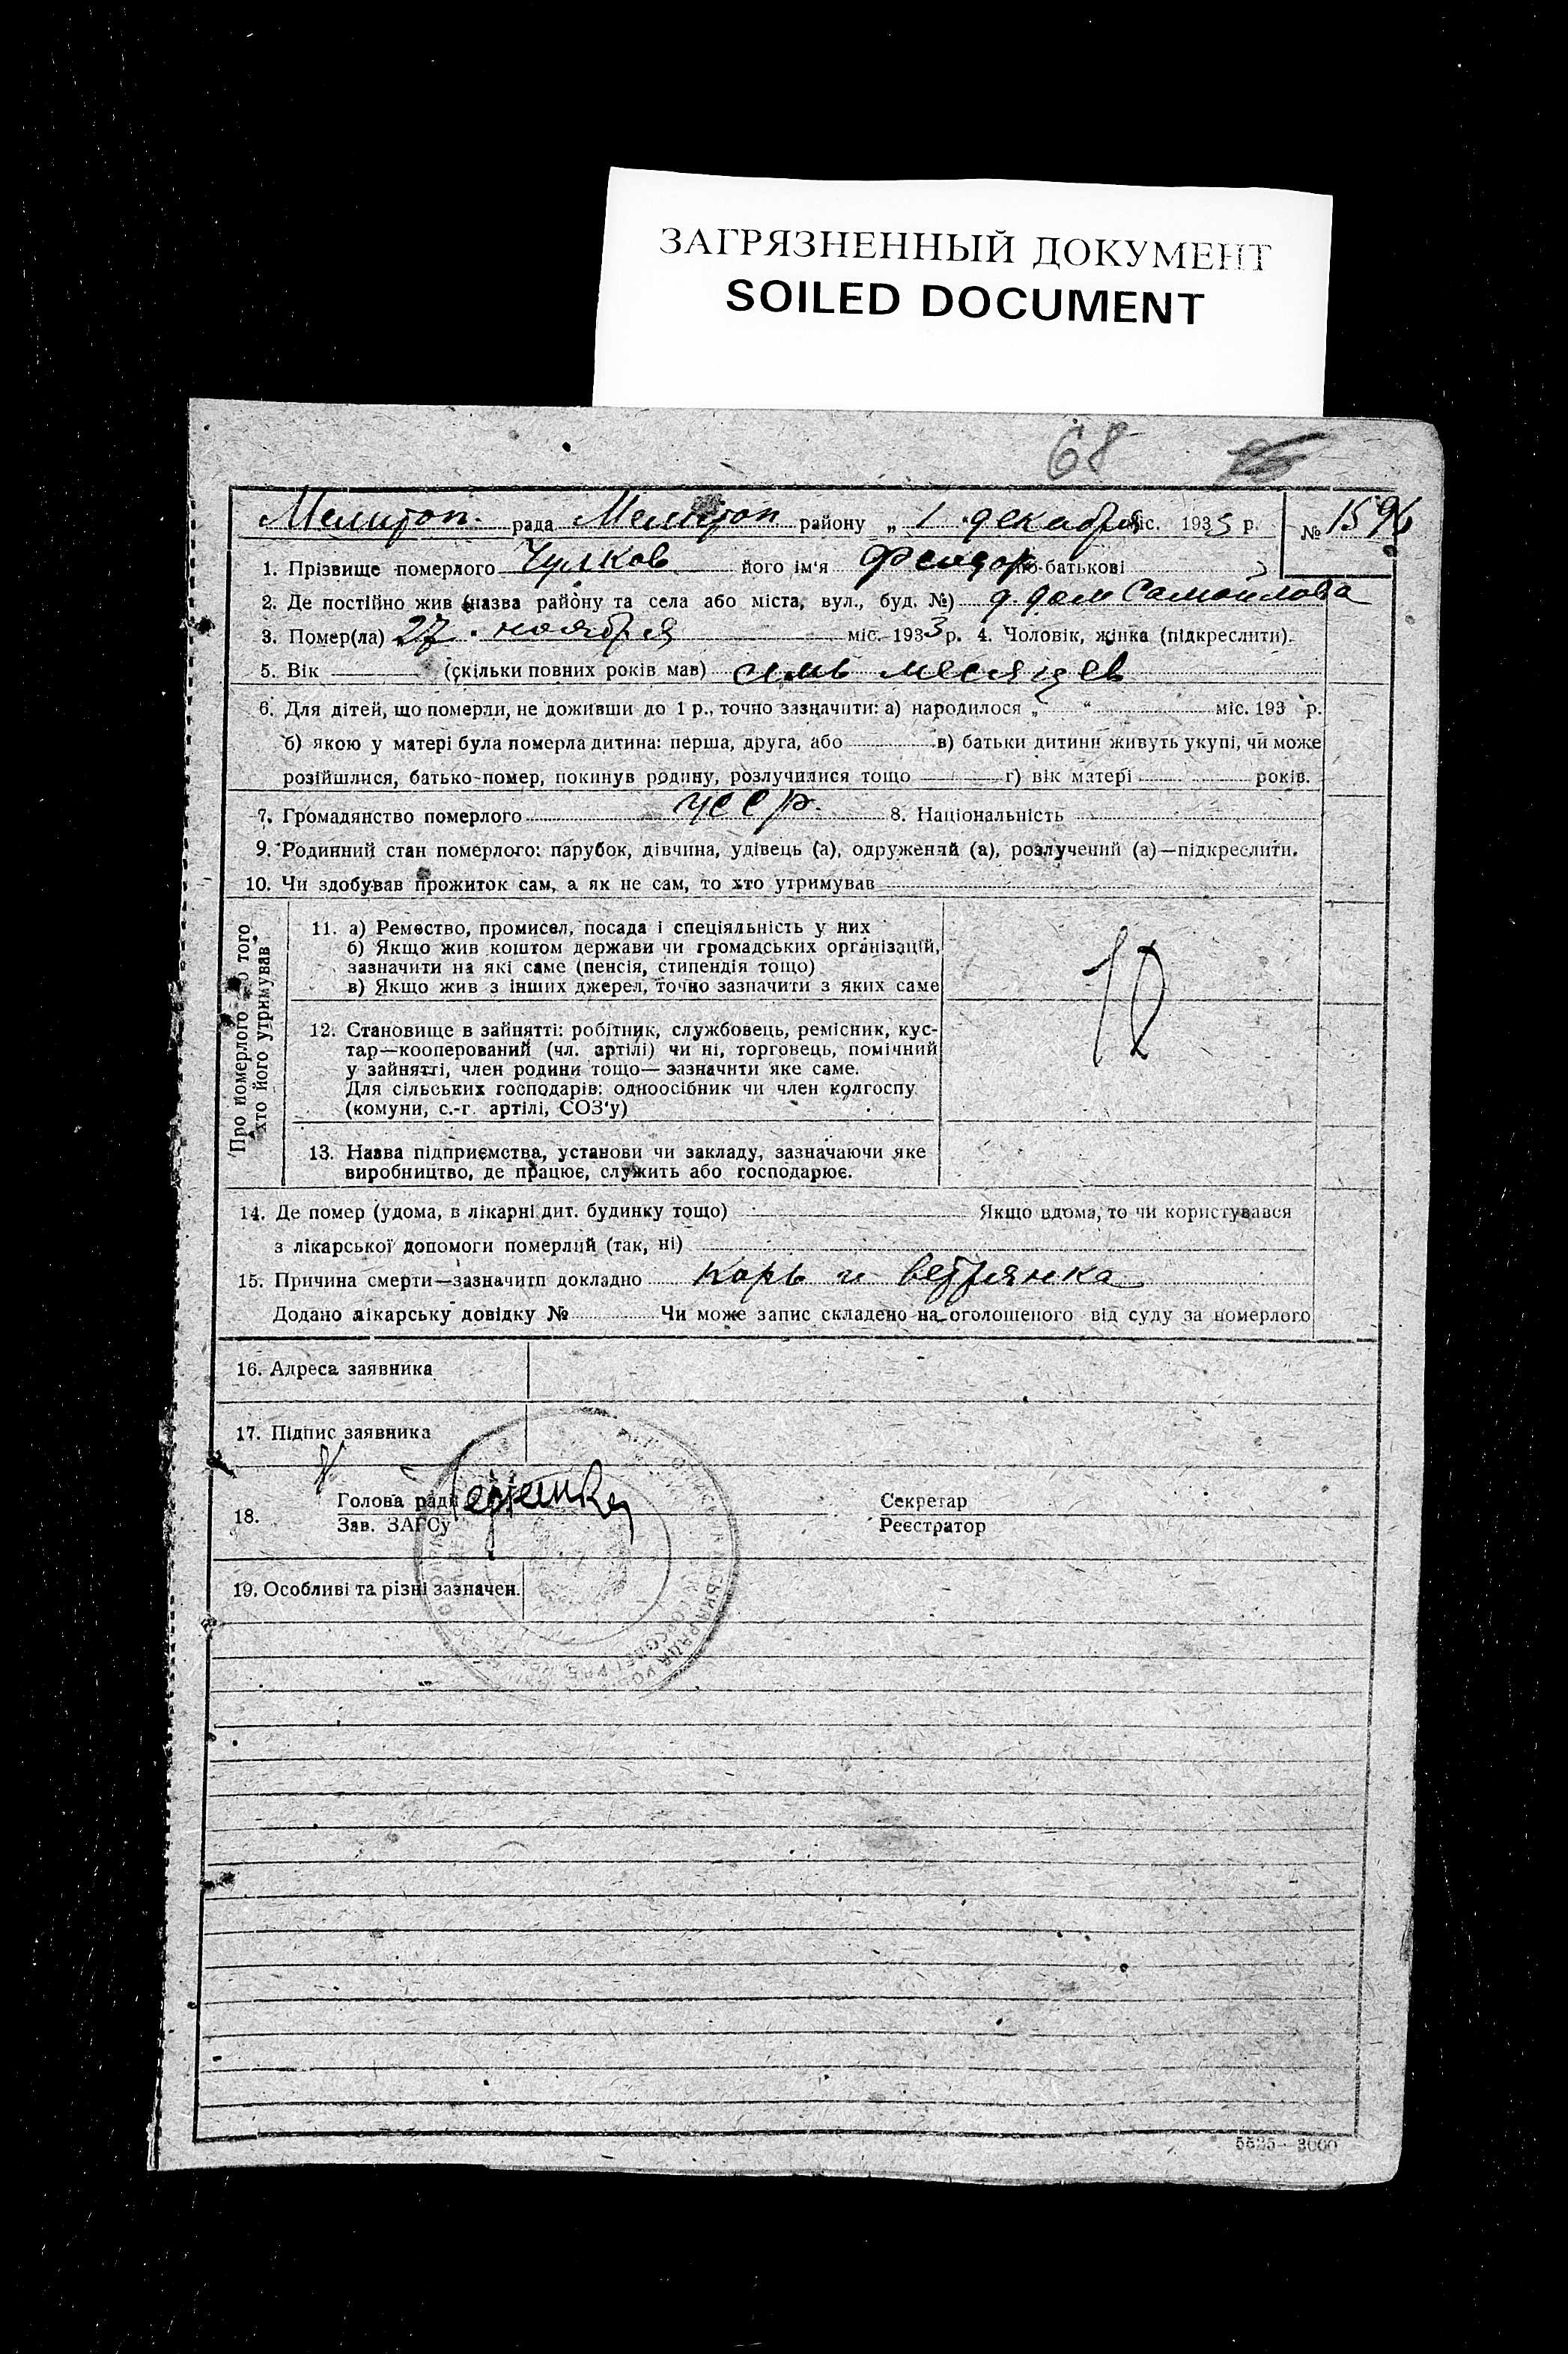 ЗАГРЯЗНЕННЫЙ ДОКУМЕНТ
SOILED DOCUMENT
68
Мелитоп. рада Мелитоп району „ 1 декабря міс. 1933 р. № 1596
1. Прізвище померлого Чулков його ім'я Феидор по-батькові
2. Де постійно жив (назва району та села або міста, вул., буд. №) д. дом Самойлова
3. Помер(ла) 27. ноября міс. 1933 р. 4. Чоловік, жінка (підкреслити).
5. Вік (скільки повних років мав) семь месяцев
6. Для дітей, що померли, не доживши до 1 р., точно зазначити: а) народилося „ “ міс. 193 р.
б) якою у матері була померла дитина: перша, друга, або в) батьки дитини живуть укупі, чи може
розійшлися, батько-помер, покинув родину, розлучилися тощо г) вік матері років.
7. Громадянство померлого УССР. 8. Національність
9. Родинний стан померлого: парубок, дівчина, удівець (а), одружений (а), розлучений (а)—підкреслити.
10. Чи здобував прожиток сам, а як не сам, то хто утримував
Про померлого того,
хто його утримував
11. а) Ремество, промисел, посада і спеціяльність у них
б) Якщо жив коштом держави чи громадських організацій,
зазначити на які саме (пенсія, стипендія тощо)
в) Якщо жив з інших джерел, точно зазначити з яких саме
10
12. Становище в зайнятті: робітник, службовець, ремісник, кус-
тар—кооперований (чл. артілі) чи ні, торговець, помічний
у зайнятті, член родини тощо— зазначити яке саме.
Для сільських господарів: одноосібник чи член колгоспу
(комуни, с.-г. артілі, СОЗ'у)
13. Назва підприємства, установи чи закладу, зазначаючи яке
виробництво, де працює, служить або господарює.
14. Де помер (удома, в лікарні дит. будинку тощо) Якщо вдома, то чи користувався
з лікарської допомоги померлий (так, ні)
15. Причина смерти—зазначити докладно Корь и ветрянка
Додано лікарську довідку № Чи може запис складено на оголошеного від суду за померлого
16. Адреса заявника
17. Підпис заявника
18. Голова ради Секретар
Зав. ЗАГСу Реєстратор
19. Особливі та різні зазначен.
5525—3000